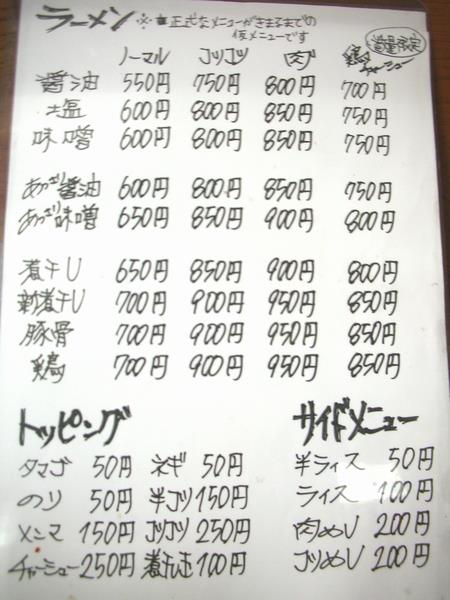 ラーメン ※正式なメニューがきまるまでの
仮メニューです
数量限定
ノーマル コツコツ 肉ブ 鶏チャーシュー
醤油 550円 750円 800円 700円
塩 600円 800円 850円 750円
味噌 600円 800円 850円 750円
あっさり醤油 600円 800円 850円 750円
あっさり味噌 650円 850円 900円 800円
煮干し 650円 850円 900円 800円
新煮干し 700円 900円 950円 850円
豚骨 700円 900円 950円 850円
鶏 700円 900円 950円 850円
トッピング サイドメニュー
タマゴ 50円 ネギ 50円 半ライス 50円
のり 50円 半コツ 150円 ライス 100円
メンマ 150円 コツコツ 250円 肉めし 200円
チャーシュー 250円 煮干玉 100円 コツめし 200円